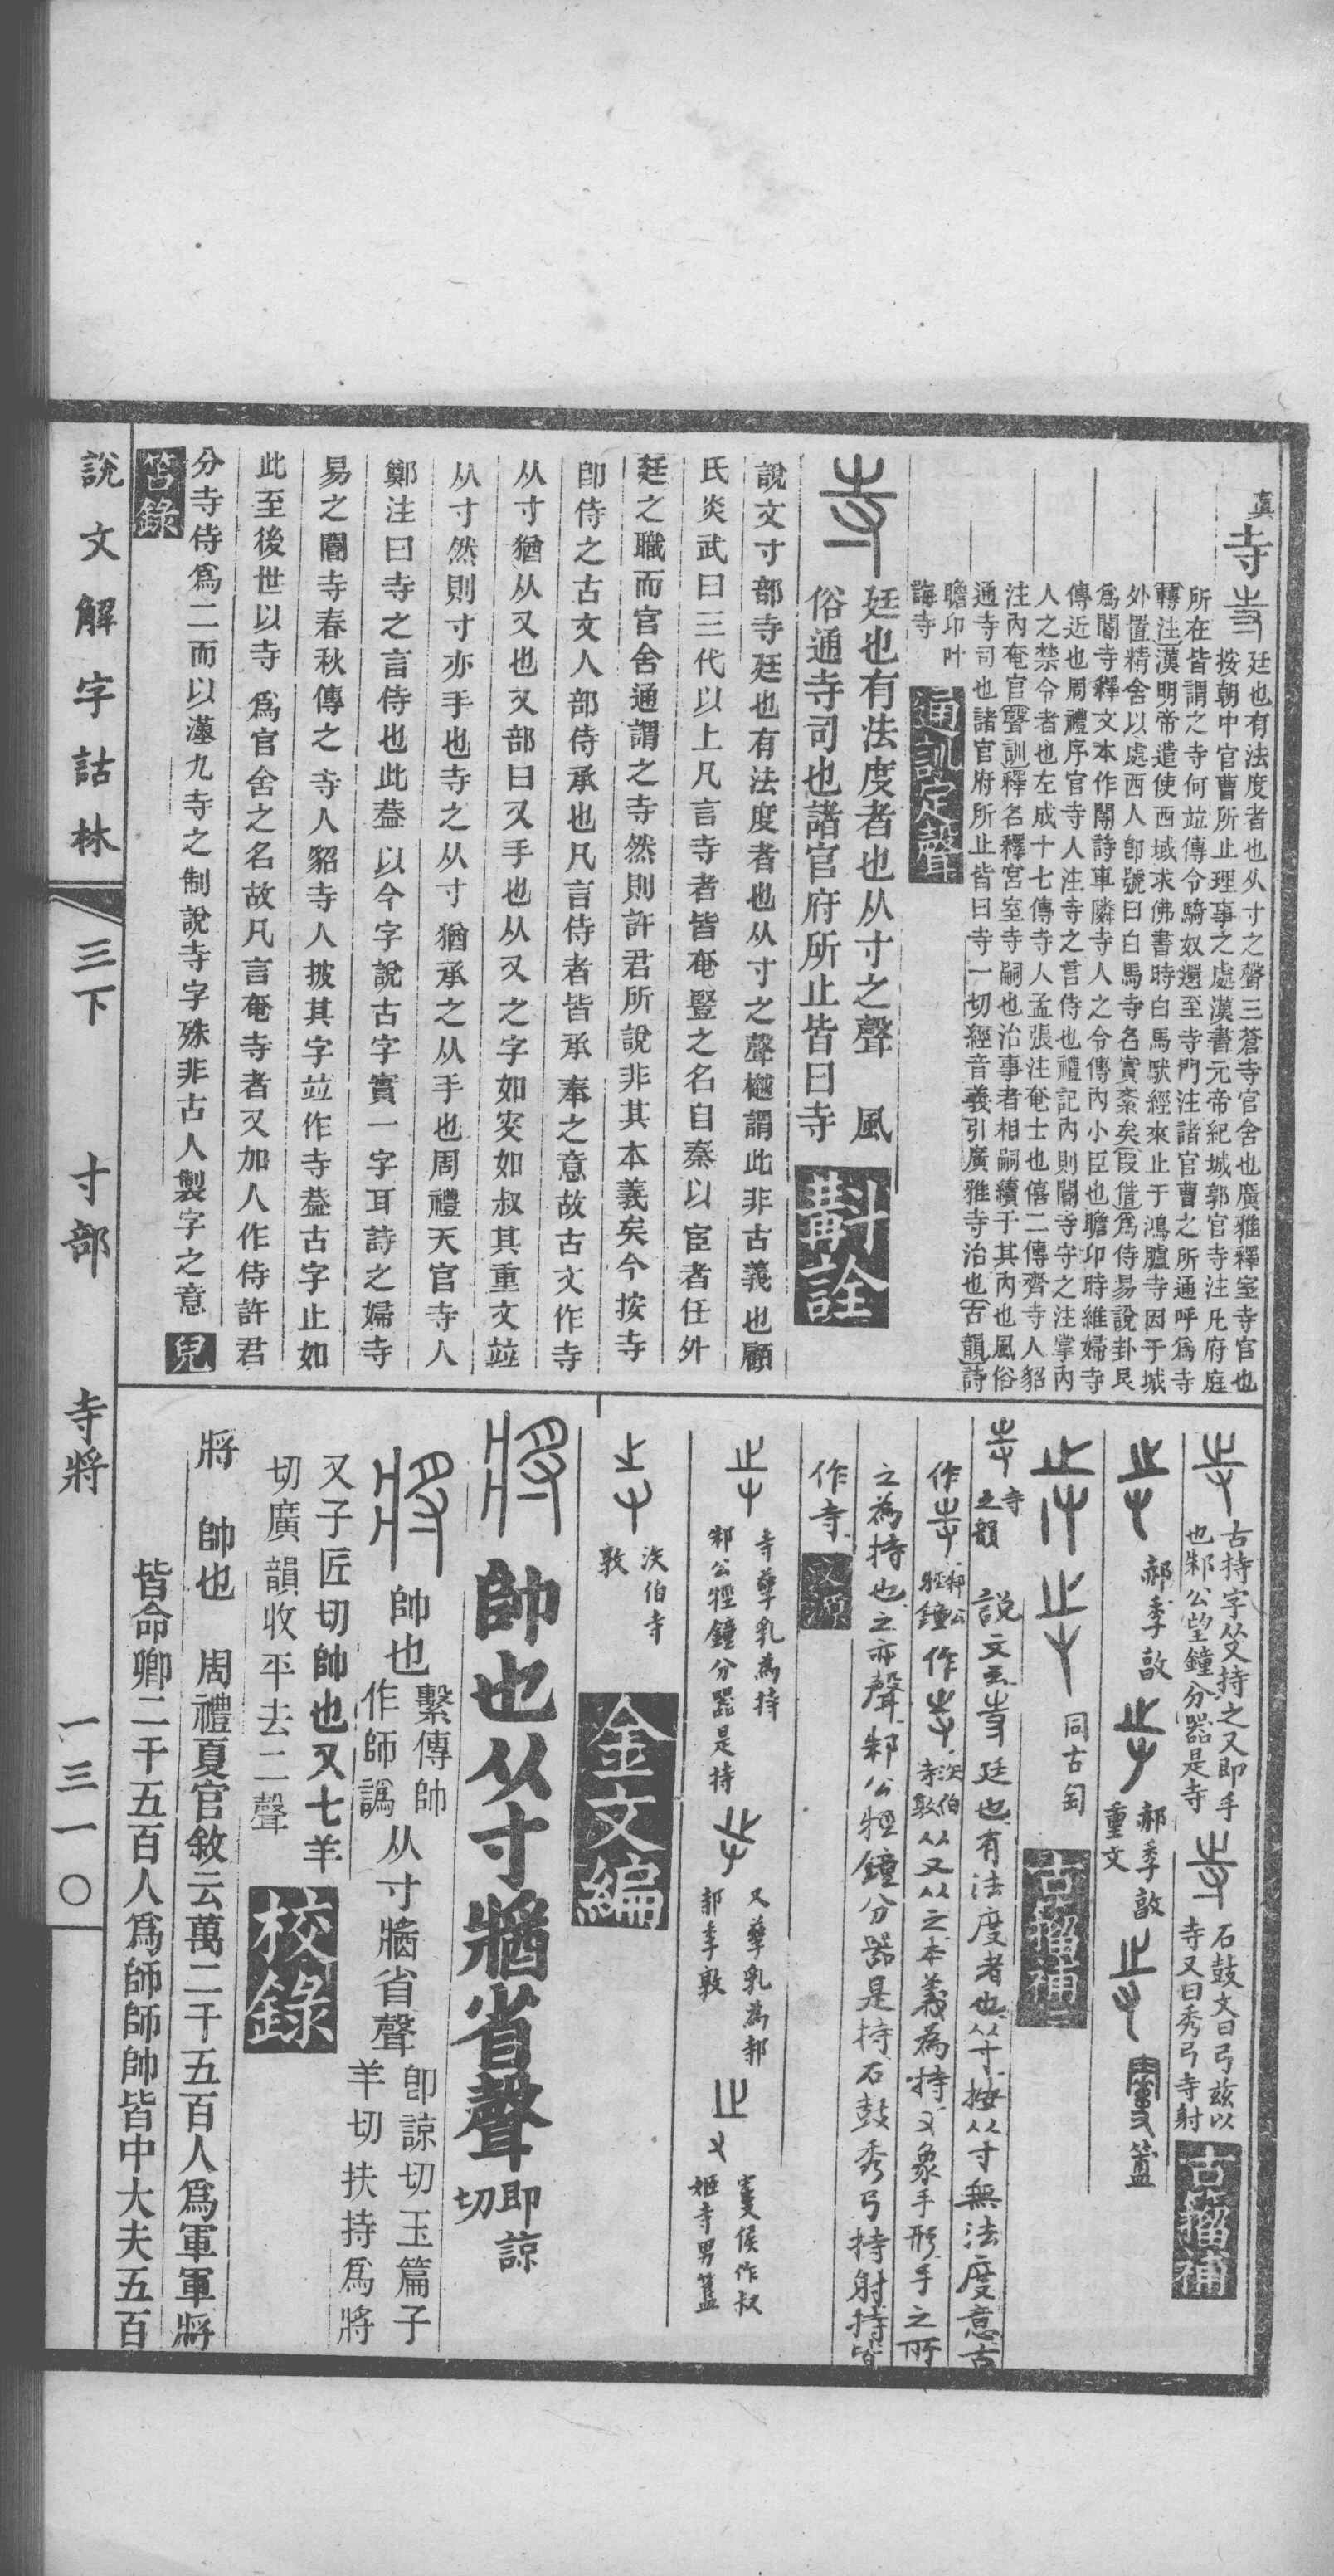 眞
寺
廷也有法度者也从寸之聲三蒼寺官舍也廣雅釋室寺官也
按朝中官曹所止理事之處漢書元帝紀城郭官寺注凡府庭
所在皆謂之寺何竝傳令騎奴還至寺門注諸官曹之所通呼爲寺
轉注漢明帝遣使西域求佛書時白馬馱經來止于鴻臚寺因于城
外置精舍以處西人卽號曰白馬寺名實紊矣叚借爲侍易說卦艮
爲閽寺釋文本作閽詩車隣寺人之令傳內小臣也瞻卬時維婦寺
傳近也周禮序官寺人注寺之言侍也禮記內則閽寺守之注掌內
人之禁令者也左成十七傳寺人孟張注奄士也僖二傳齊寺人貂
注內奄官聲訓釋名釋宮室寺嗣也治事者相嗣續于其內也風俗
通寺司也諸官府所止皆曰寺一切經音義引廣雅寺治也古韻詩
瞻卬叶
誨寺
通訓定聲
廷也有法度者也从寸之聲 風
俗通寺司也諸官府所止皆曰寺
斠詮
說文寸部寺廷也有法度者也从寸之聲樾謂此非古義也顧
氏炎武曰三代以上凡言寺者皆奄豎之名自秦以宦者任外
廷之職而官舍通謂之寺然則許君所說非其本義矣今按寺
卽侍之古文人部侍承也凡言侍者皆承奉之意故古文作寺
从寸猶从又也又部曰又手也从又之字如叜如叔其重文竝
从寸然則寸亦手也寺之从寸猶承之从手也周禮天官寺人
鄭注曰寺之言侍也此葢以今字說古字實一字耳詩之婦寺
易之閽寺春秋傳之寺人貂寺人披其字竝作寺葢古字止如
此至後世以寺爲官舍之名故凡言奄寺者又加人作侍許君
分寺侍爲二而以漢九寺之制說寺字殊非古人製字之意
兒
笘錄
古持字从又持之又即手
也邾公望鐘分器是寺
石鼓文曰弓玆以
寺又曰秀弓寺射
古籀補
郝季敦
郝季敦
重文
簠
同古匋
古籀補
寺
之韻
說文云
廷也有法度者也从寸按从寸無法度意古
作
邾公
牼鐘
作
㳄伯
寺敦
从又从之本義為持又象手形手之所
之為持也之亦聲邾公牼鐘分器是持石鼓秀弓持射持皆
作寺
文源
寺孳乳為持
邾公牼鐘分器是持
又孳乳為邿
邿季敦
侯作叔
姬寺男簠
㳄伯寺
敦
金文編
帥也从寸牆省聲
即諒
切
帥也
繫傳帥
作師譌
从寸牆省聲
卽諒切玉篇子
羊切扶持爲將
又子匠切帥也又七羊
切廣韻收平去二聲
校錄
將 帥也 周禮夏官敘云萬二千五百人爲軍軍將
皆命卿二千五百人爲師師帥皆中大夫五百
說文解字詁林
三下
寸部
寺將
一三一〇